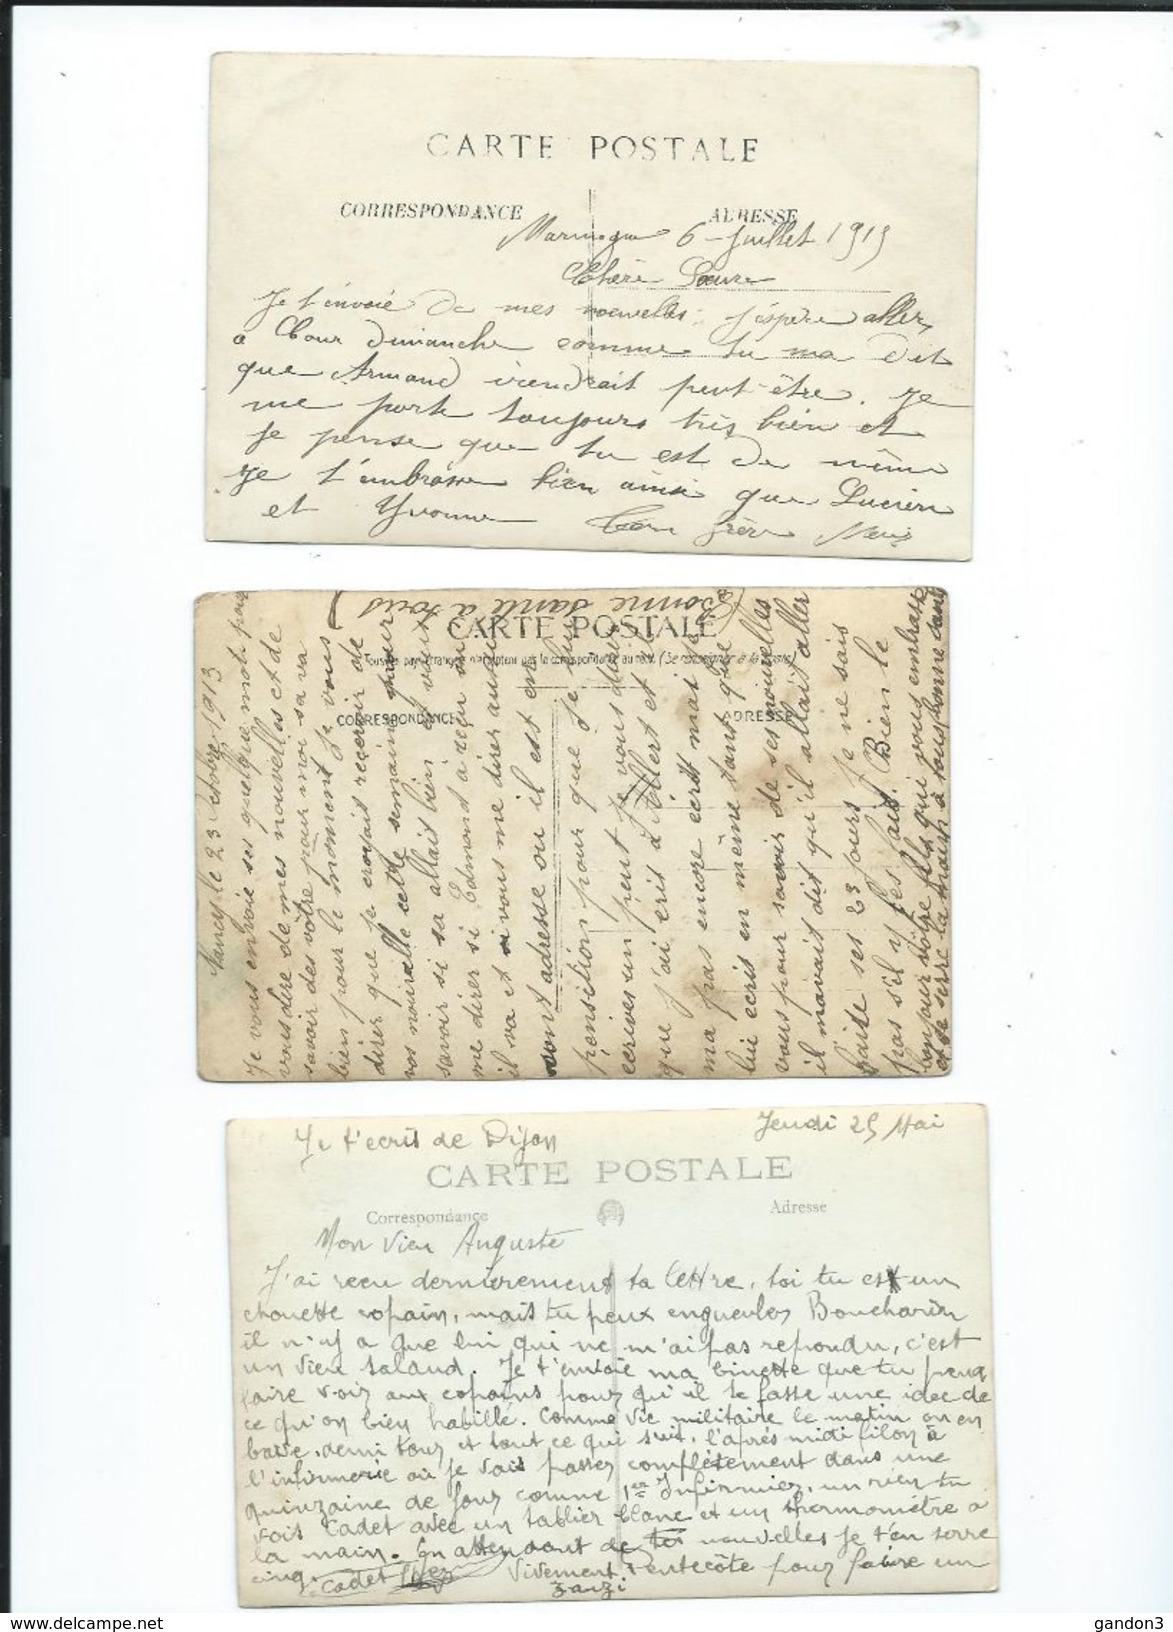 CARTE POSTALE
CORRESPONDANCE ADRESSE
6 Juillet 1913
Chère Soeure
Je t'envoie de mes nouvelles j'éspère aller
a Cour dimanche comme tu ma dit
que Armand viendrait peut-être. Je
me porte toujours très bien et
je pense que tu est de même
Je t'embrasse bien ainsi que Lucien
et Yvonne Ton frère
Bonne santé a tous
CARTE POSTALE
CORRESPONDANCE ADRESSE
Nancy le 23 octobre 1913
Je vous envoie ses quelque mots pour
vous dire de mes nouvelles et de
savoir des vôtre pour moi sa va
bien pour le moment je vous
direr que je croyait recevoir de
vos nouvelle cette semaine pour
savoir si sa allait bien et vous
me direr si Edmond a reçu
il va et si vous me direr aussi
sont adresse ou il est en
pensition pour que je lui
écrives un peut je vous
que j'ai écris à Albert et il
ma pas encore écrit mai je
lui écris en même tant que
vous pour savoir de ses nouvelles
il mavait dit qu'il allait aller
faire ses 23 jours je ne sais
pas s'il y les fait. Bien le
bonjour vôtre fils qui vous embrasse
et se serre la main à tous bonne santé
Je t'ecris de Dijon Jeudi 25 Mai
CARTE POSTALE
Correspondance Adresse
Mon vieu Auguste
J'ai recu dernièrement ta lettre, toi tu est un
chouette copain, mais tu peux engueuler Boucharin
il n'y a que lui qui ne m'ai pas repondu, c'est
un vieu salaud. Je t'envoie ma binette que tu peux
faire voir aux copains pour qu'il se fasse une idee de
ce qu'on bien habillé. Comme vie militaire le matin on en
bave, demi tour et tout ce qui suit, l'après midi filon à
l'infirmerie où je vais passer complètement dans une
quinzaine de jour comme 1er Infirmier, un rien tu
vois Cadet avec un tablier blanc et un thermomètre a
la main. En attendant de tes nouvelles je t'en serre
cinq. Cadet Vivement Pentecôte pour faire un
zanzi
gandon3